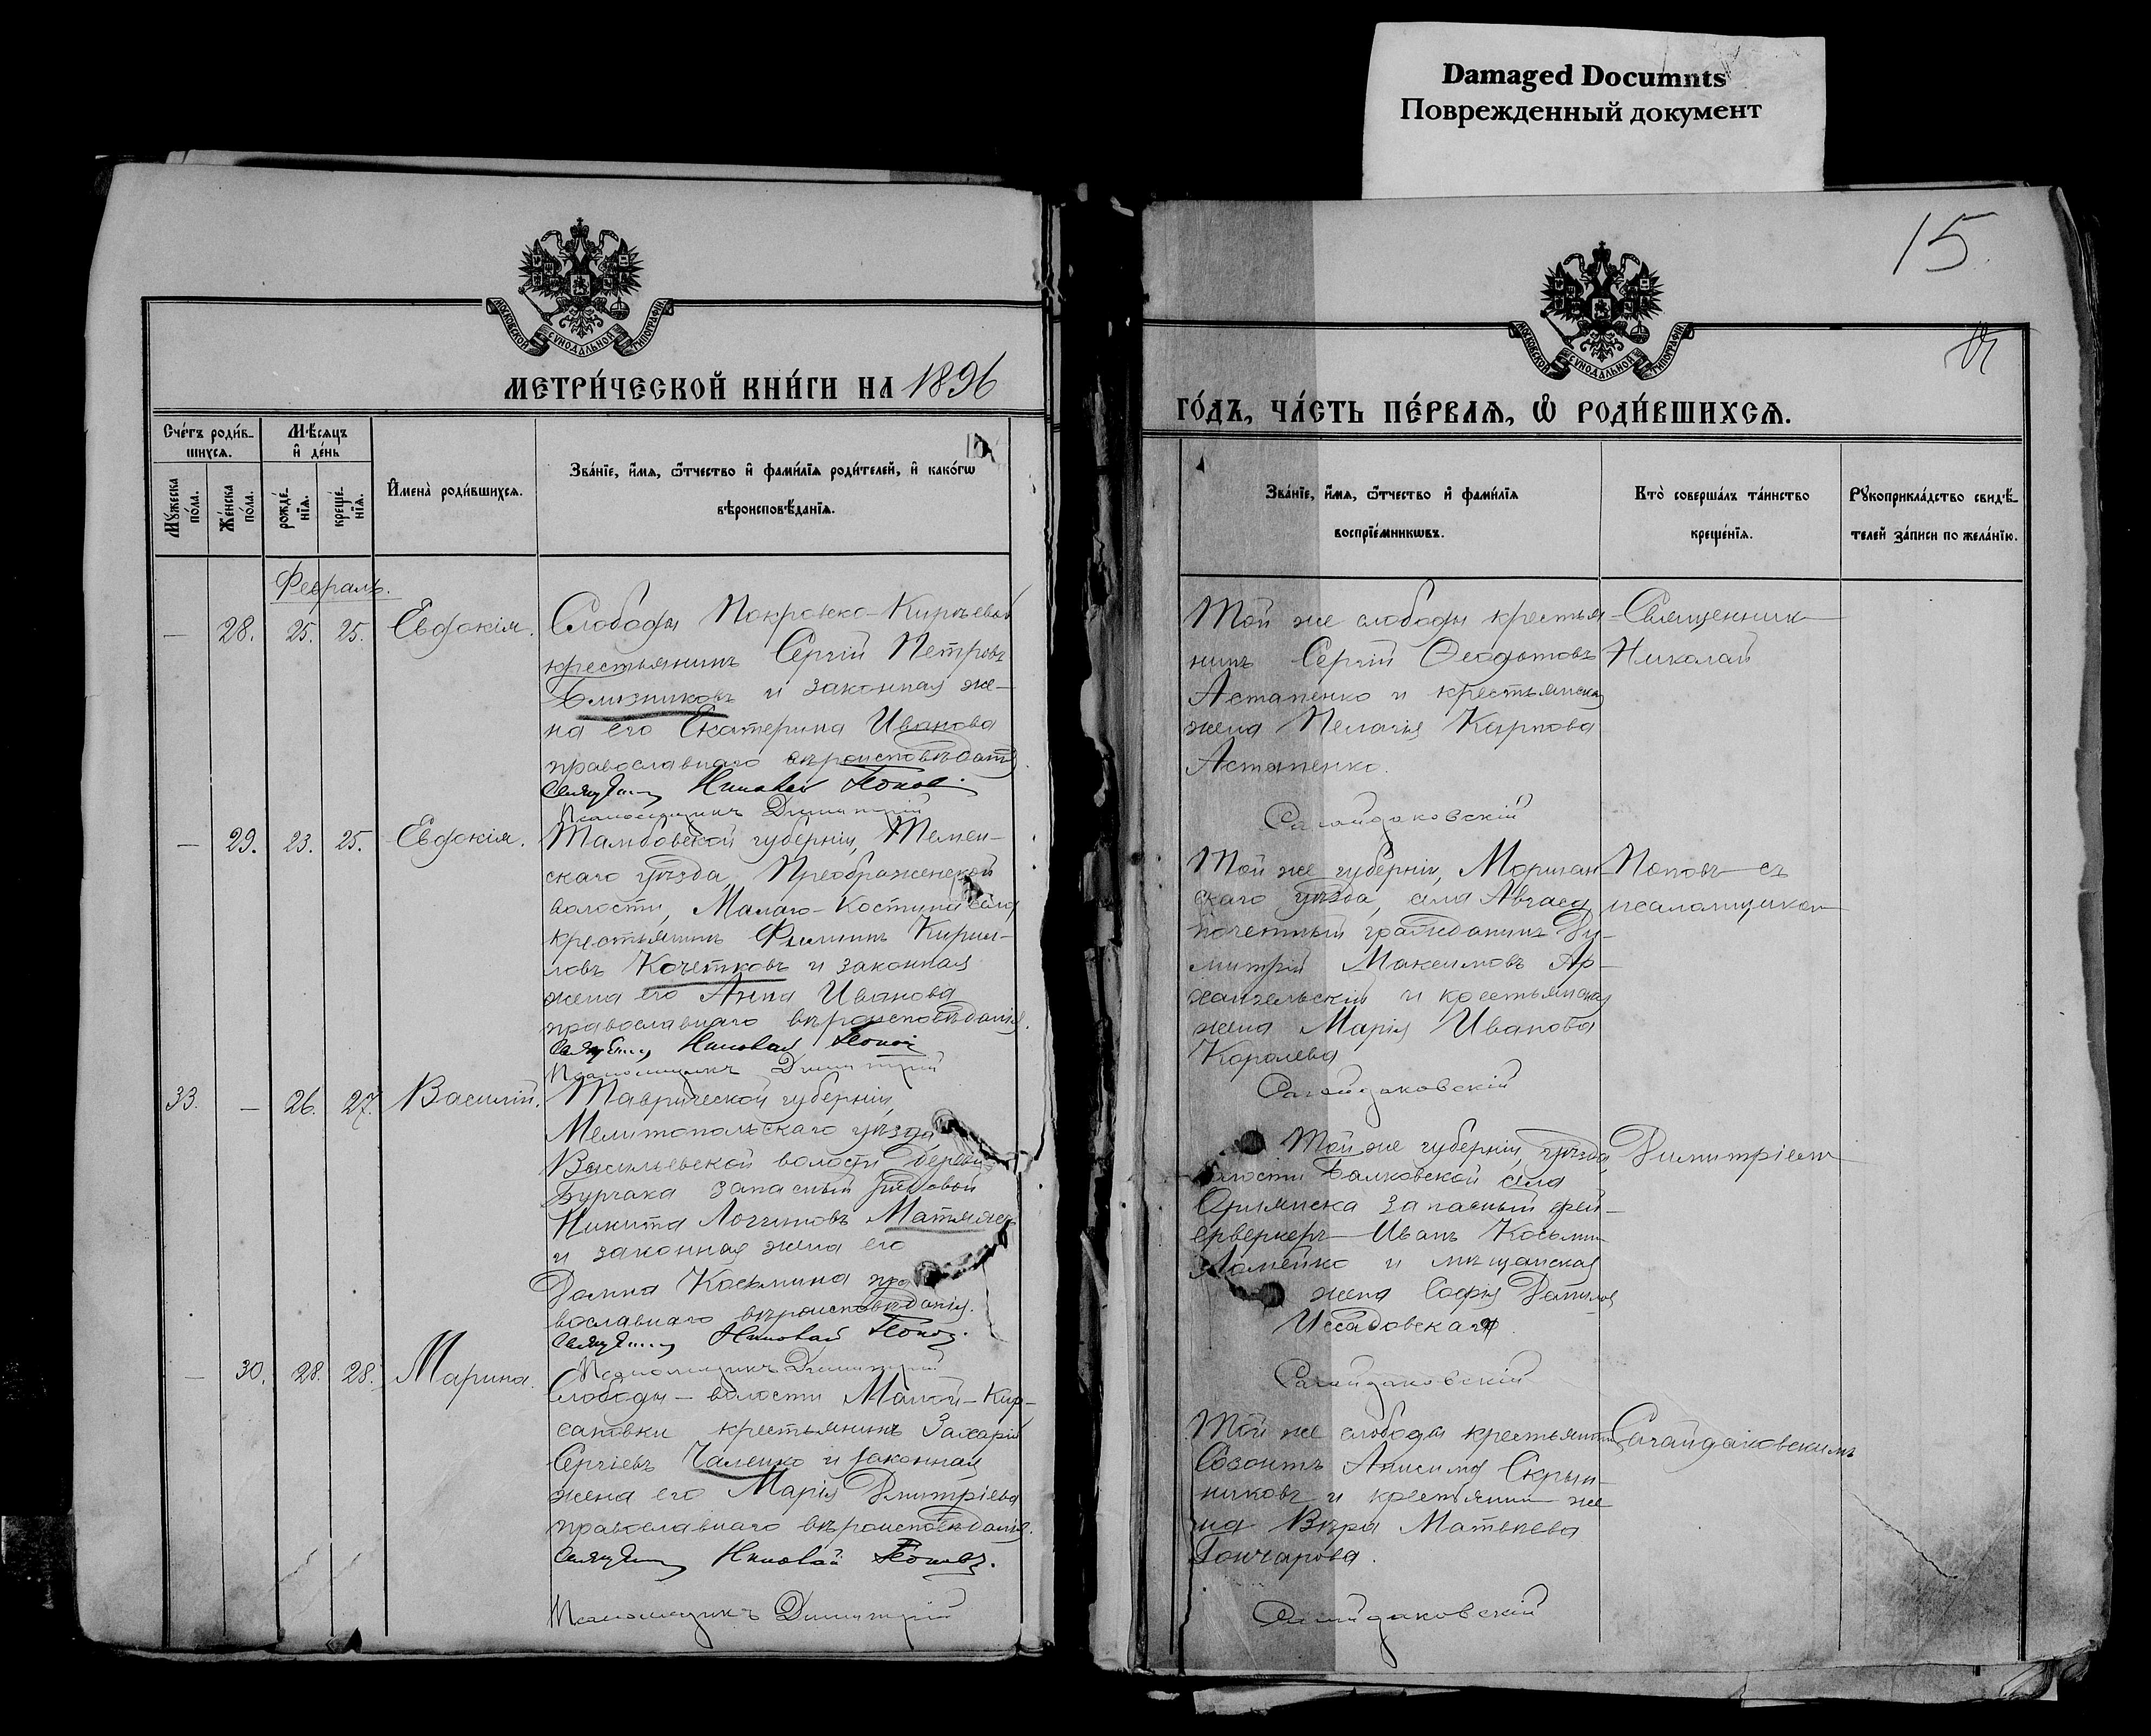 Damaged Documnts
Поврежденный документ
15
МОСКОВСКОЙ СѴНОДАЛЬНОЙ ТИПОГРАФІИ
МЕТРИ́ЧЕСКОЙ КНИ́ГИ НА 1896
Сче́тъ роди́в-
шихсѧ.
Мѣ́сѧцъ
и҆ де́нь
Му́жеска
по́ла.
Же́нска
по́ла.
рожде́-
нїѧ.
креще́-
нїѧ.
И҆мена̀ роди́вшихсѧ.
Зва́нїе, и҆́мѧ, ѻ҆́тчество и҆ фами́лїѧ роди́телей, и҆ како́гѡ
вѣроисповѣ́данїѧ.
Февраль.
— 28. 25. 25. Евдокія.
Слободы Покровко-Кирѣевой
крестьянинъ Сергій Петровъ
Близниковъ и законная же-
на его Екатерина Иванова
православнаго вѣроисповѣданія.
Николай Попов
Псаломщикъ Димитрій
— 29. 23. 25. Евдокія.
Тамбовской губерніи, Темен-
скаго уѣзда, Преображенской
волости, Малаго-Костина села
крестьянинъ Филиппъ Кирил-
ловъ Кочетковъ и законная
жена его Анна Иванова
православнаго вѣроисповѣданія.
Николай Попов
Псаломщикъ Димитрій
33. — 26. 27. Василій.
Таврической губерніи,
Мелитопольскаго уѣзда
Васильевской волости деревни
Бурчака запасный рядовой
Никита Логгиновъ Матяжъ
и законная жена его
Домна Косьмина пра
вославнаго вѣроисповѣданія.
Николай Попов.
Псаломщикъ Димитрій
— 30. 28. 28. Марина.
Слободы-волости Малой-Кир-
сановки крестьянинъ Захарій
Сергіевъ Чаленко и законная
жена его Марія Димитріева
православнаго вѣроисповѣданія.
Николай Поповъ.
Псаломщикъ Димитрій
МОСКОВСКОЙ СѴНОДАЛЬНОЙ ТИПОГРАФІИ
ГО́ДЪ, ЧА́СТЬ ПЕ́РВАѦ, Ѡ҆ РОДИ́ВШИХСѦ.
Зва́нїе, и҆́мѧ, ѻ҆́тчество и҆ фами́лїѧ
воспрїе́мникѡвъ.
Кто̀ соверша́лъ та́инство
креще́нїѧ.
Рꙋкоприкла́дство свидѣ́-
телей за́писи по жела́нїю.
Той же слободы крестья-
нинъ Сергій Ѳеодотовъ
Астапенко и крестьянская
жена Пелагія Карпова
Астапенко.
Сагайдаковскій
Священник
Николай
Той же губерніи, Моршан-
скаго уѣзда, села
почетный гражданинъ Ди-
митрій Максимовъ Ар-
хангельскій и крестьянская
жена Марія Иванова
Королева
Сагайдаковскій
Поповъ съ
псаломщиком
Той же губерніи, уѣзда
волости Балковской села
запасный фей-
ерверкеръ Иванъ Косьмин
Ломейко и мѣщанская
жена Софія
Сагайдаковскій
Димитріем
Той же слободы крестьянинъ
Созонтъ Анисимов Скрын-
никовъ и крестьянин же
на Вѣра Матвѣева
Гончарова.
Сагайдаковскій
Сагайдаковскимъ